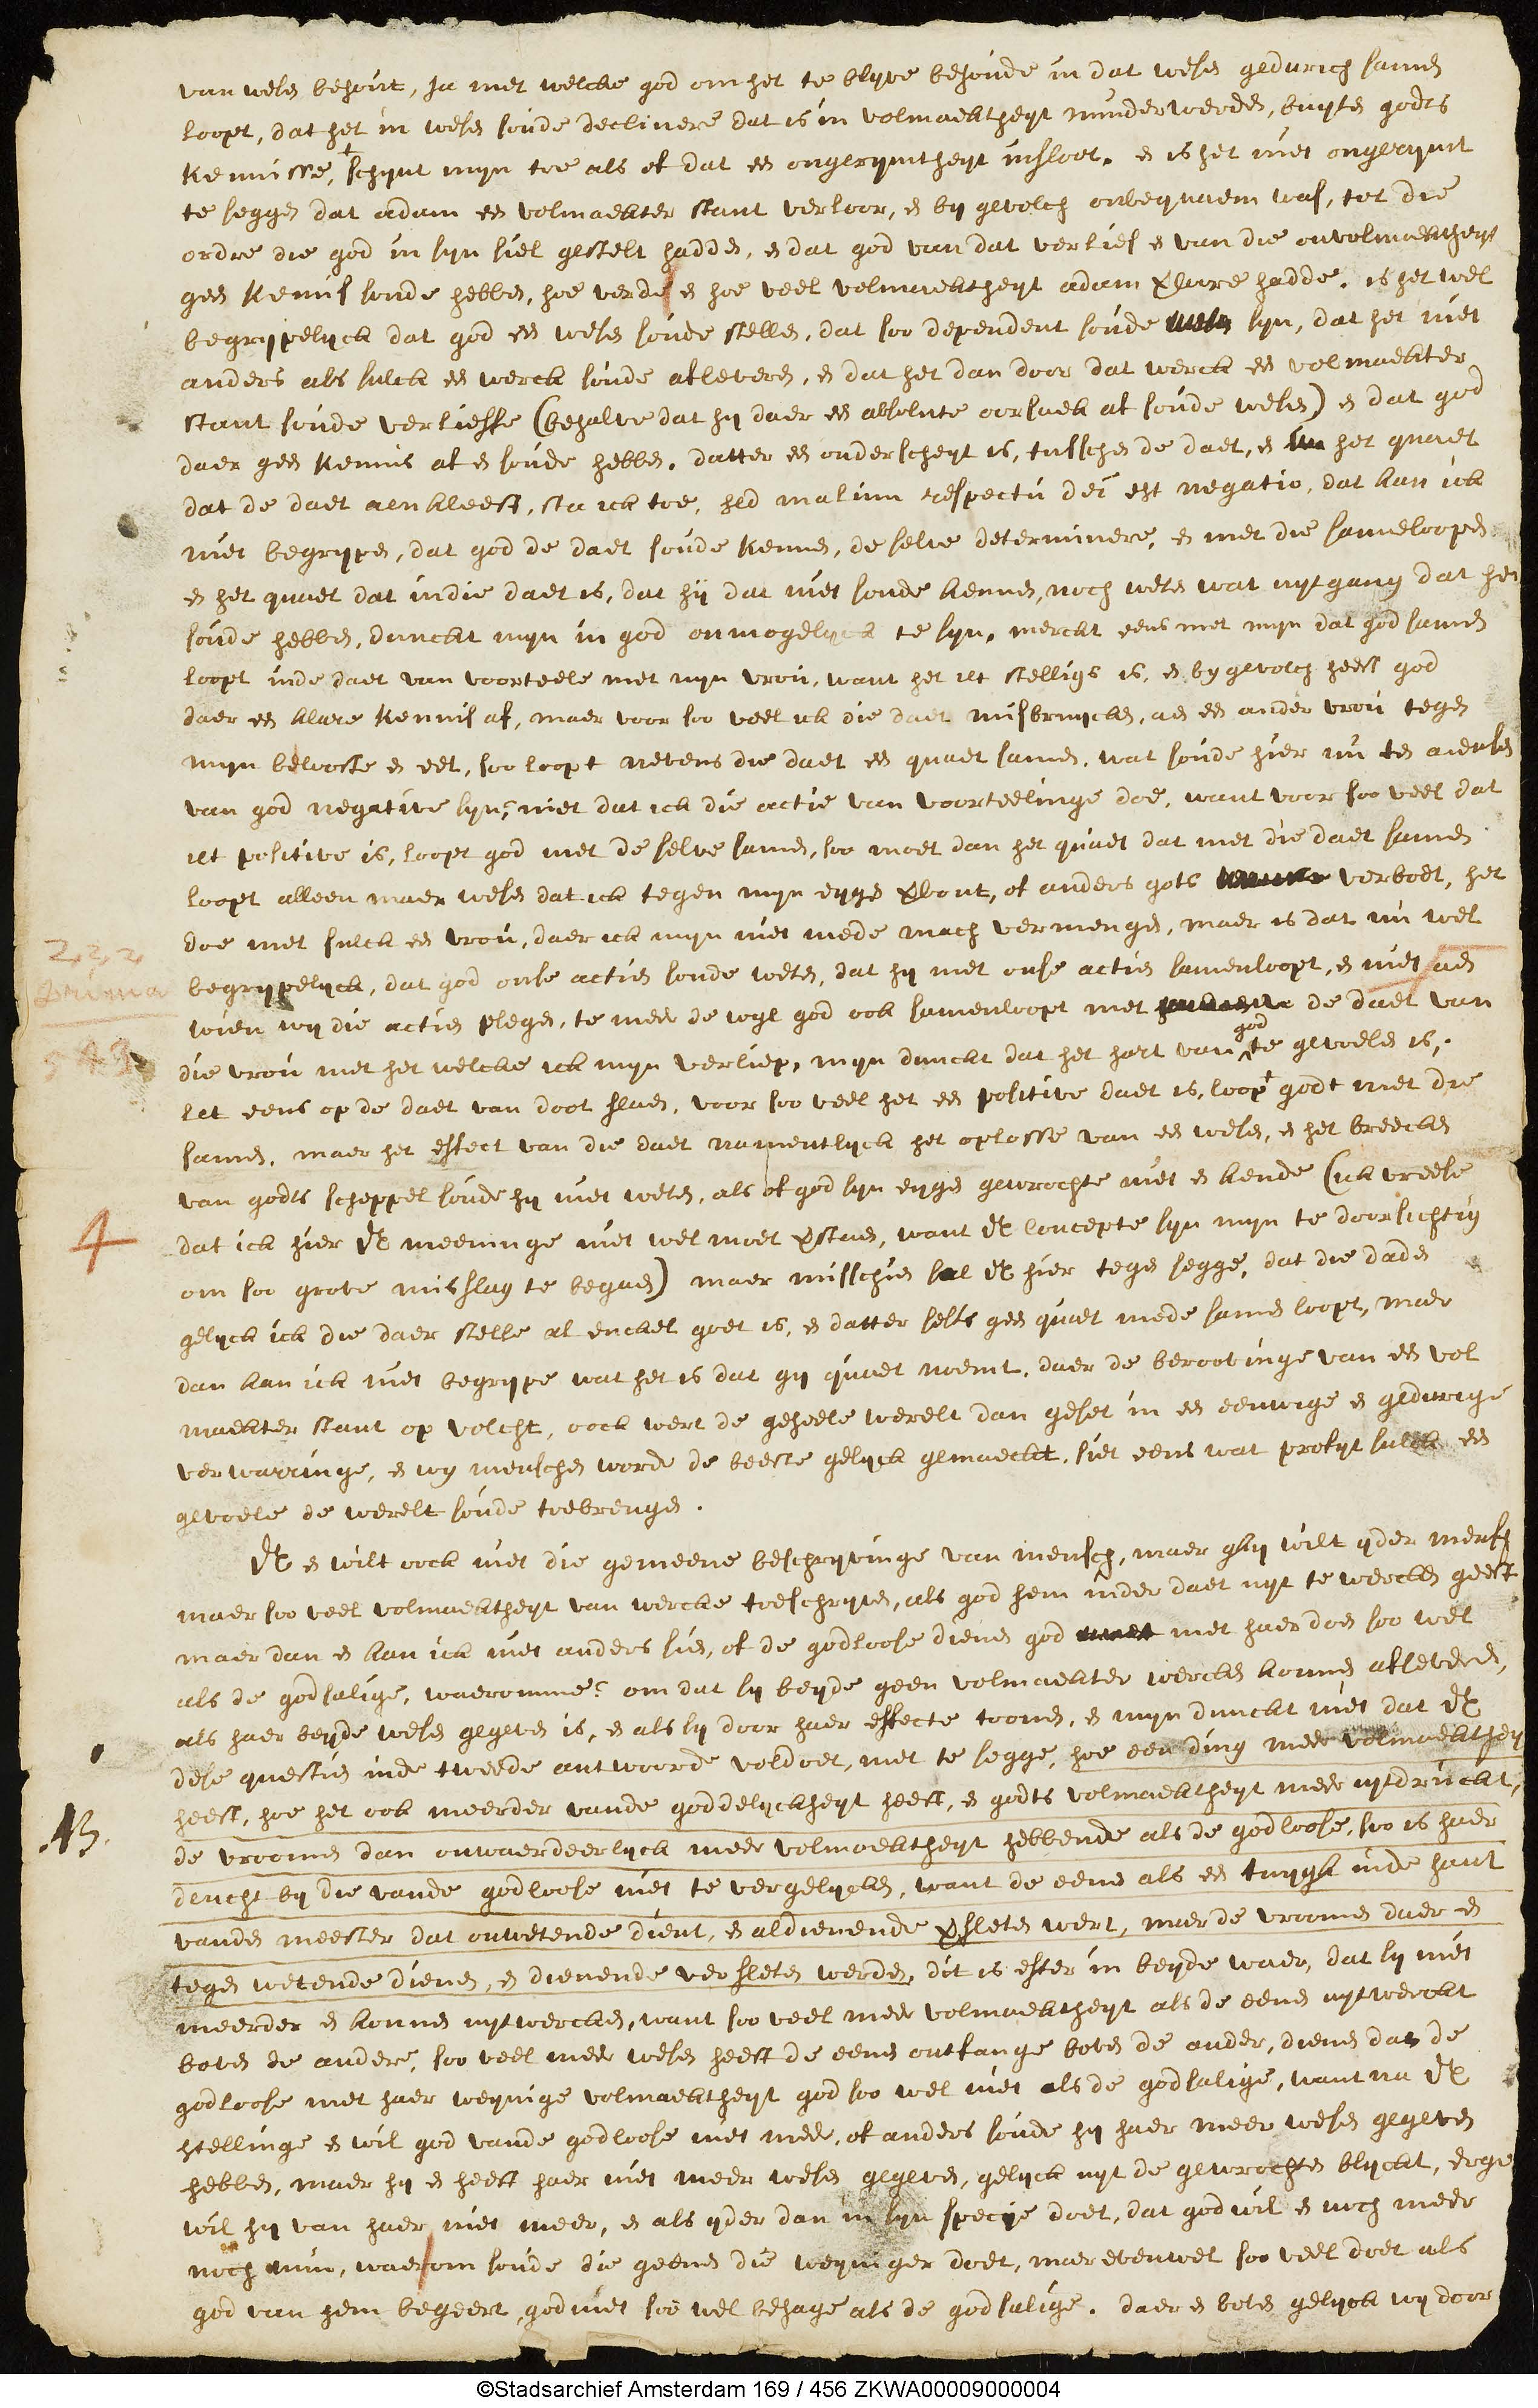 van wesen behout, Ja met welcke god om het te blyve behoude in dat wesen gedurich samen
loopt, dat het in wesen soude declinere dat is in volmaecktheyt minder worden, buyten godts
Kennisse, schynt myn toe als of dat een ongerymtheyt insloot. en is het niet ongerymt
te seggen dat adam een volmaeckter stant verloor, en by gevolch onbequaem was, tot die
ordre die god in syn siel gestelt hadden, en dat god van dat verlies en van die onvolmaecktheyt
geen Kennis soude hebben, hoe verde en hoe veel volmaecktheyt adam vlore hadde. is het wel
begrypelyck dat god een wesen soude stellen, dat soo dependent soude syn, dat het niet
anders als sulck een werck soude afleveren, en dat het dan door dat werck een volmaeckter
stant soude verliesse (behalve dat hy daer een absolute oorsaek af soude wesen) en dat god
daer geen Kennis af en soude hebben. datter een onderscheyt is, tusschen de daet, en het quaet
dat de daet aenkleeft, sta ick toe, sed malum respectu dei est negatio, dat kan ick
niet begrypen, dat god de daet soude Kennen, de selve determinere, en met die sameloopen
en het quaet dat in die daet is, dat hy dat niet soude kennen, noch weten wat uytgang dat het
soude hebben, dunckt myn in god onmogelyck te syn. merckt eens met myn dat god samen
loopt inde daet van voorteele met myn vrou, want het iet stelligs is, en by gevolch heeft god
daer een klare Kennis af, maer voor soo veel ick die daet misbruycken, aen een ander vrou tegen
myn belooste en eet, soo loopt nevens die daet een quaet samen. wat soude hier nu ten aensien
van god negative syn; niet dat ick die actie van voorteelinge doe, want voor soo veel dat
iet positive is, loopt god met de selve samen, soo moet dan het quaet dat met die daet samen
loopt alleen maer wesen dat ick tegen myn eygen vbont, of anders gots verbodt, het
doe met sulck een vrou, daer ick myn niet mede mach vermengen, maer is dat nu wel
begrypelyck, dat god onse actien soude weten, dat hy met onse actien samenloopt, en niet aen
wien wy die actien plegen, te meer de wyl god ook samenloopt met de daet van
die vrou met het welcke ick myn verliep, myn dunckt dat het hart van god te gevoelen is.
let eens op de daet van doot slaen, voor soo veel het een positive daet is, loopt godt met die
samen. maer het effect van die daet namentlyck het oplosse van een wesen, en het breecken
van godts scheppel soude hy niet weten, als of god syn eygen gewrochte niet en kende (ick vreese
dat ick hier VE meeninge niet wel moet vstaen, want VE concepte syn myn te doorsichtig
om soo grote misslag te begaen) maer misschien sal VE hier tegen segge, dat die daden
gelyck ick die daer stelle al enckel goet is, en datter selfs geen quaet mede samen loopt, maer
dan kan ick niet begrype wat het is dat gy quaet noemt, daer de berovinge van een vol
maeckter stant op volcht, oock wert de geheele werelt dan geset in een eeuwige en gedurige
verwarringe, en wy menschen worde de beeste gelyck gemaeckt. siet eens wat profyt sulck een
gevoele de werelt soude toebrengen.
VE en wilt oock niet die gemeene beschryvinge van mensch, maer ghy wilt yder mensch
maer soo veel volmaecktheyt van wercke toeschryven, als god hem inder daet uyt te wercken geeft
maer dan en kan ick niet anders sien, of de godloose dienen god met haer doen soo wel
als de godsalige, waeromme? om dat sy beyde geen volmaeckter wercken konnen afleveren,
als haer beyde wesen gegeven is, en als sy door haer effecte toonen, en myn dunckt niet dat VE
dese questien inde tweede antwoorde voldoet, met te segge, hoe een ding meer volmaecktheyt
heeft, hoe het ook meerder vande goddelyckheyt heeft, en godts volmaecktheyt meer uytdruckt,
de vroomen dan onwaerdeerlyck meer volmaecktheyt hebbende als de godloose, soo is haer
deucht by die vande godloose niet te vergelycken, want de eene als een tuygh inde hant
vanden meester dat onwetende dient, en aldienende vsleten wert, maer de vroomen daer en
tegen wetende dienen, en dienende versleten werden, dit is efter in beyde waer, dat sy niet
meerder en konnen uytwercken, want soo veel meer volmaecktheyt als de eenen uytwerckt
boven de andere, soo veel meer wesen heeft de eenen ontfange boven de ander, dienen dan de
godloose met haer weynige volmaecktheyt god soo wel niet als de godsalige, want na VE
stellinge en wil god vande godloose niet meer, of anders soude hy haer meer wesen gegeven
hebben, maer hy en heeft haer niet meer wesen gegeven, gelyck uyt de gewrochten blyckt, ergo
wil hy van haer niet meer, en als yder dan in syn specije doet, dat god wil en noch meer
noch min, waerom soude die geenen die weyniger doet, maer evenwel soo veel doet als
god van hem begeert, god niet soo wel behage als de godsalige. daer en boven gelyck wy door
4
NB.
©Stadsarchief Amsterdam 169 / 456 ZKWA00009000004